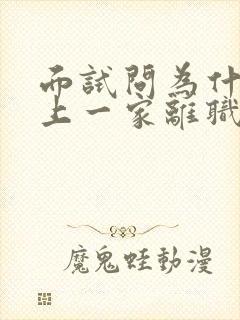 而試問為什
上一家離職
魔鬼蛙動漫